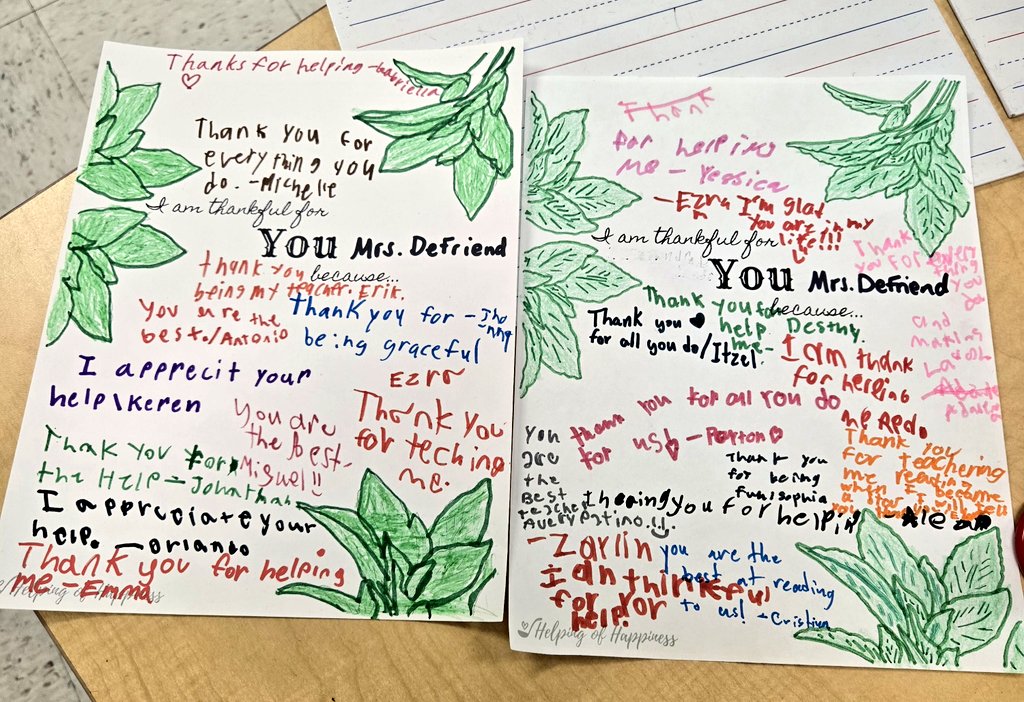 Thanks for helping -Gabriella
Thank you for
everything you
do. -Michelle
I am thankful for
YOU Mrs. DeFriend
because...
thank you
being my teacher. Erik.
You are the
best./Antonio
Thank you for - Jho
nny
being graceful
I apprecit your
help\Keren
Ezra
Thank you
for teching
me.
You are
the best-
Miguel!!
Thank you for
the HELP - Johnathan
I apprciate your
help. - orlando
Thank you for helping
me - Emma
Helping of Happiness
Thank
for helping
me - Yessica
-Ezra I'm glad
You are in my
life!!!
I am thankful for
YOU Mrs. DeFriend
because...
Thank
you For every
thing
you
do
and
making
us
Thank you
help me- Destny.
Thank you
for all you do/Itzel.
I am thank
for helping
me
thank you for all you do
for us! - Peyton
You
are
the
Best
teacher
Avery Patino.
Thank you
for being
fun/sophia
you for helpin
Thank you
for teachering
me reading
when I become
-Zarlin
I am thinkful
for yor
help.
you are the
best at reading
to us! - Cristian
Helping of Happiness